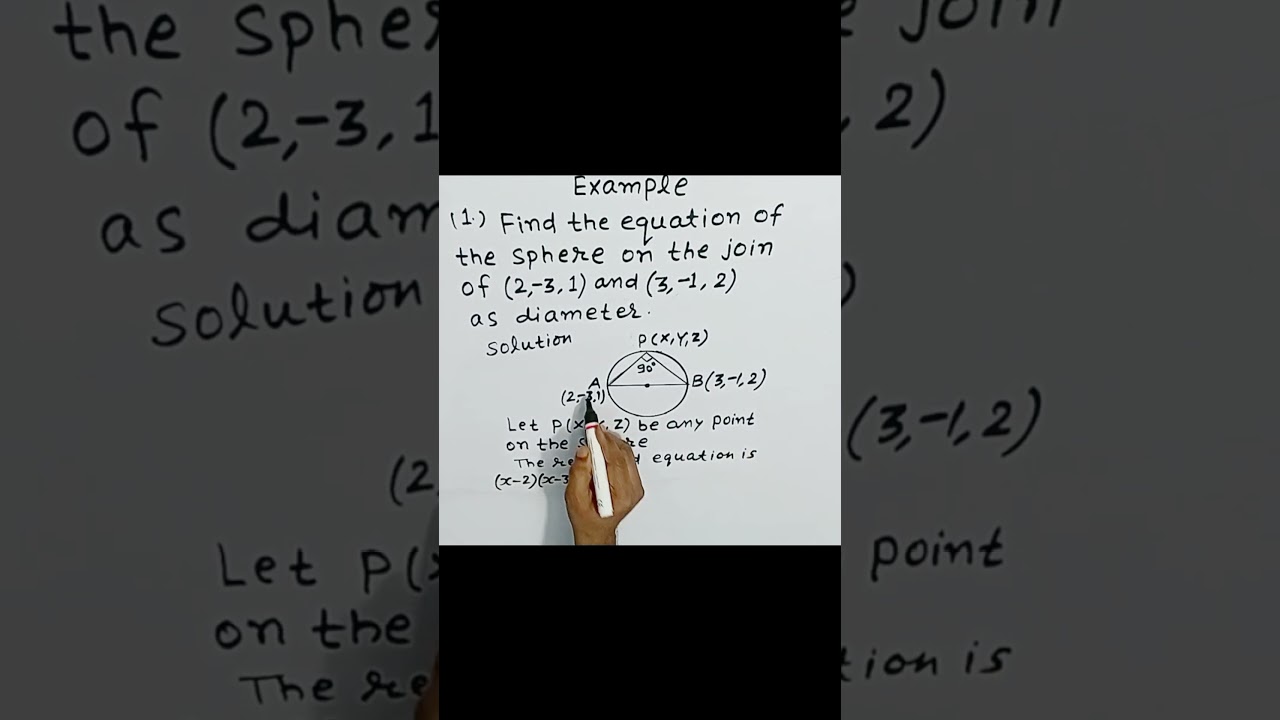 Example
(1.) Find the equation of
the sphere on the join
of (2,-3,1) and (3,-1, 2)
as diameter.
Solution
P(X,Y,Z)
90°
A
B(3,-1,2)
(2,-3,1)
Let P(X, , Z) be any point
on the
The equation is
(x-2)(x-3